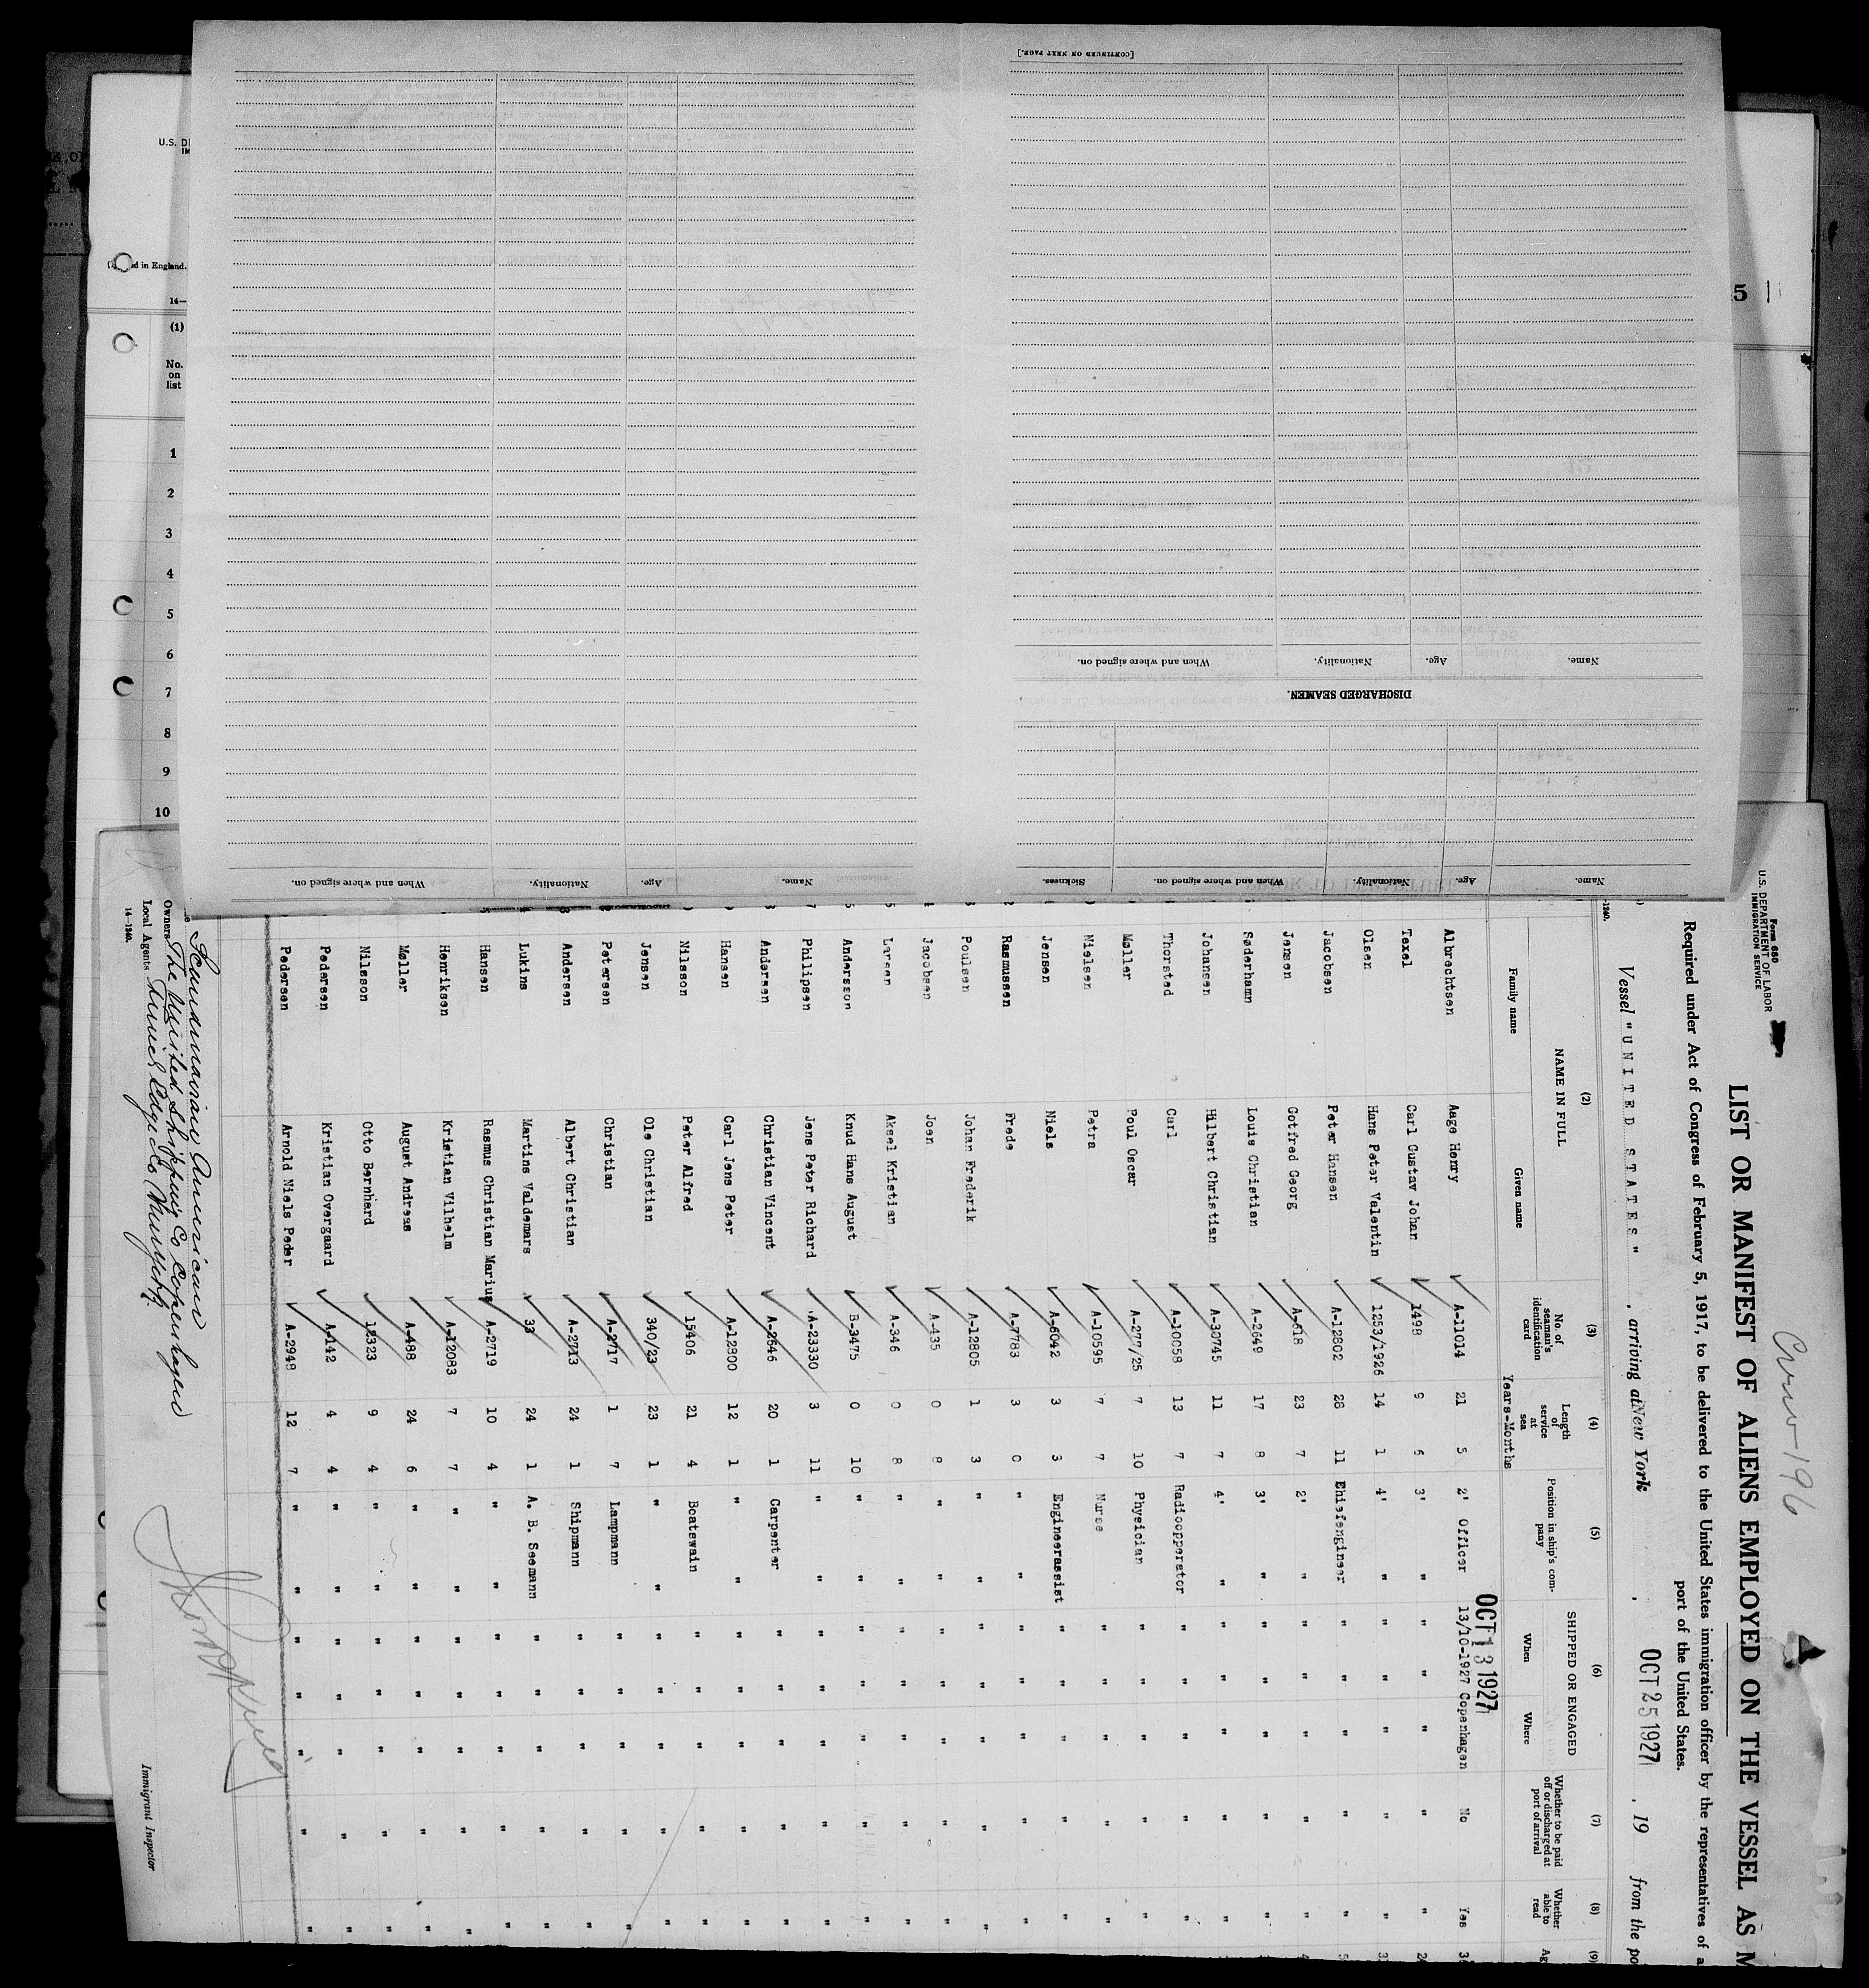 [CONTINUED ON NEXT PAGE.]
When and where signed on.
Nationality.
Age.
Name.
DISCHARGED SEAMEN.
When and where signed on.
Nationality.
Age.
Name.
Sickness.
When and where signed on.
Nationality.
Age.
Name.
U.S.
in England.
14—
(1)
No.
on
list
1
2
3
4
5
6
7
8
9
10
5
Form 680
U.S. DEPARTMENT OF LABOR
IMMIGRATION SERVICE
Crew 196
LIST OR MANIFEST OF ALIENS EMPLOYED ON THE VESSEL AS M
Required under Act of Congress of February 5, 1917, to be delivered to the United States immigration officer by the representatives of a
port of the United States.
Vessel "UNITED STATES", arriving at New York, OCT 25 1927, 19 from the po
(2) (3) (4) (5) (6) (7) (8) (9)
NAME IN FULL
Family name Given name
No. of seaman's identification card
Length of service at sea
Years-Months
Position in ship's company
SHIPPED OR ENGAGED
When Where
Whether to be paid off or discharged at port of arrival
Whether able to read
OCT 13 1927
Albrechtsen Aage Henry A-11014 21 5 2' Officer 13/10-1927 Copenhagen No Yes
Texel Carl Gustav Johan 1498 9 5 3' " " " " " "
Olsen Hans Peter Valentin 1253/1926 14 1 4' " " " " " "
Jacobsen Peter Hansen A-12802 28 11 Ehiefengineer " " " " "
Jensen Gotfred Georg A-618 23 7 2' " " " " " "
Søderhamn Louis Christian A-2649 17 8 3' " " " " " "
Johansen Hilbert Christian A-30745 11 7 4' " " " " " "
Thorsted Carl A-10058 13 7 Radioopperator " " " " "
Møller Poul Oscar A-277/25 7 10 Physician " " " " "
Nielsen Petra A-10595 7 7 Nurse " " " " "
Jensen Niels A-6042 3 3 Engineerassist " " " " "
Rasmussen Frede A-7783 3 0 " " " " " " "
Poulsen Johan Frederik A-12805 1 3 " " " " " " "
Jacobsen Joen A-435 0 8 " " " " " " "
Larsen Aksel Kristian A-346 0 8 " " " " " " "
Andersson Knud Hans August B-3475 0 10 " " " " " " "
Philipsen Jens Peter Richard A-23330 3 11 " " " " " " "
Andersen Christian Vincent A-2646 20 1 Carpenter " " " " "
Hansen Carl Jens Peter A-12800 12 1 " " " " " " "
Nilsson Peter Alfred 15406 21 4 Boatswain " " " " "
Jensen Ole Christian 340/23 23 1 " " " " " " "
Petersen Christian A-2717 1 7 Lampmann " " " " "
Andersen Albert Christian A-2713 24 1 Shipmann " " " " "
Lukins Martins Valdemars 33 24 1 A. B. Seemann " " " " "
Hansen Rasmus Christian Marius A-2719 10 4 " " " " " " "
Henriksen Kristian Vilhelm A-12083 7 7 " " " " " " "
Møller August Andreas A-488 24 6 " " " " " " "
Nilsson Otto Bernhard 12323 9 4 " " " " " " "
Pedersen Kristian Overgaard A-142 4 4 " " " " " " "
Pedersen Arnold Niels Peder A-2948 12 7 " " " " " " "
Scandinavian American
Owners The United Shipping Co Copenhagen
Local Agents Funch Edye Co New York.
14—1240.
Immigrant Inspector